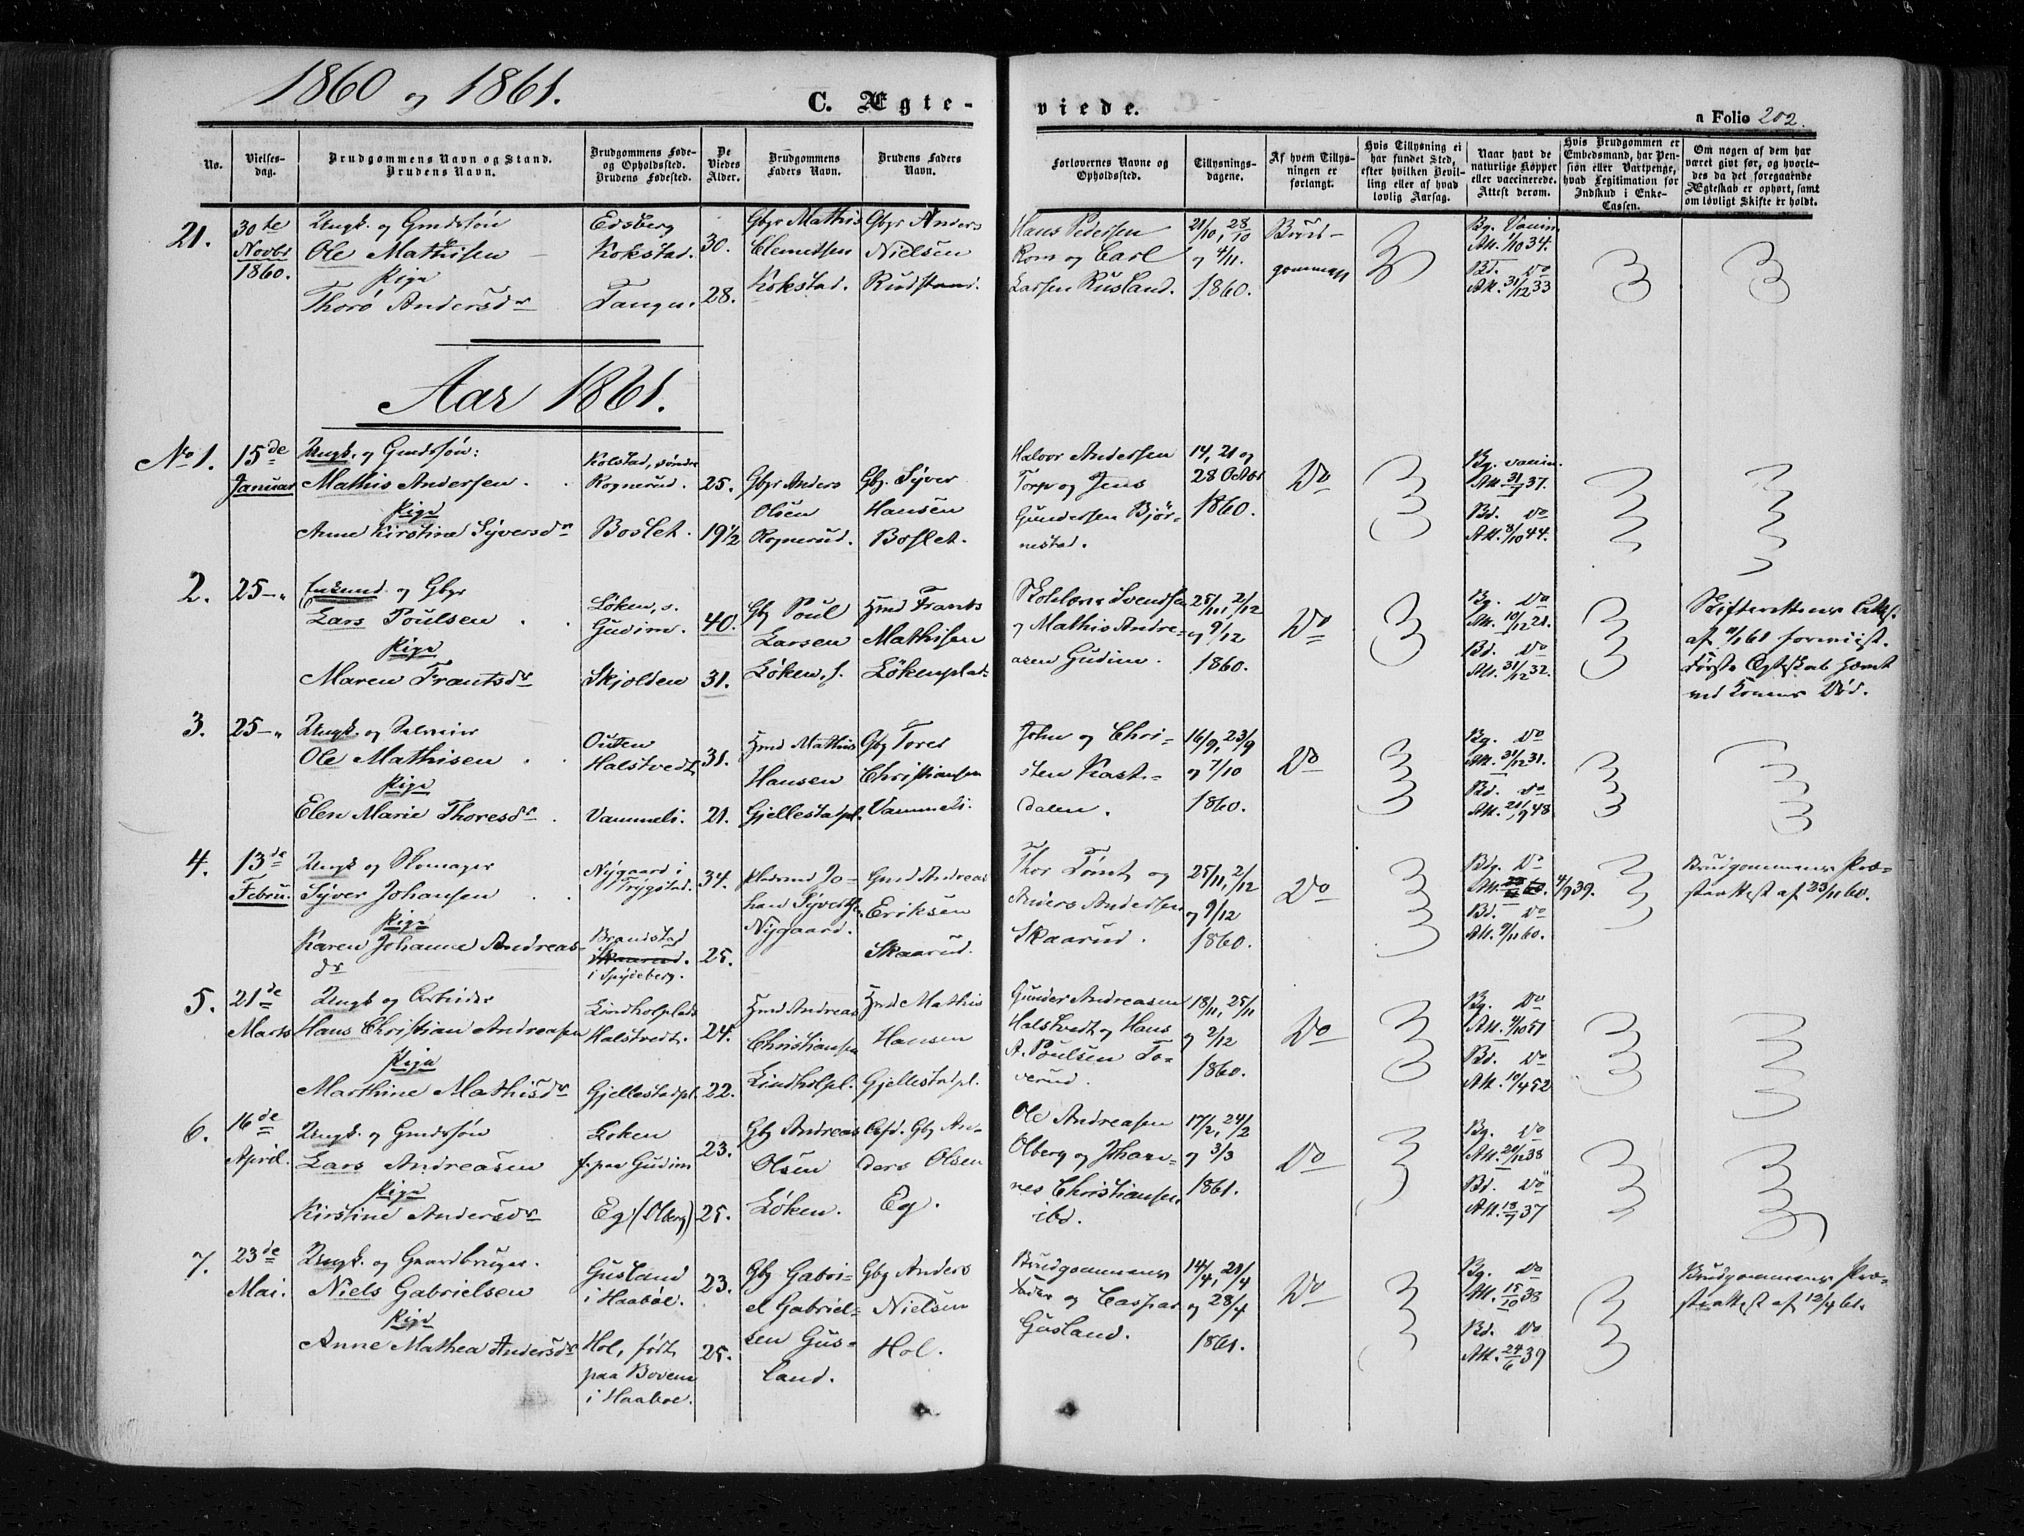 1860 og 1861.
C. Ægte-
viede.
Folio 202.
No.
Vielses-
dag.
Brudgommens Navn og Stand.
Brudens Navn.
Brudgommens Føde-
og Opholdssted.
Brudens Fødested.
De
Viedes
Alder.
Brudgommens
Faders Navn.
Brudens Faders
Navn.
Forlovernes Navne og
Opholdssted.
Tillysnings-
dagene.
Af hvem Tillys-
ningen er
forlangt.
Hvis Tillysning ei
har fundet Sted,
efter hvilken Bevil-
ling eller af hvad
lovlig Aarsag.
Naar havt de
naturlige Kopper
eller vaccinerede.
Attest derom.
Hvis Brudgommen er
Embedsmand, har Pen-
sion eller Vartpenge,
hvad Legitimation for
Indskud i Enke-
Cassen.
Om nogen af dem har
været gift før, og hvorle-
des da det foregaaende
Ægteskab er ophørt, samt
om lovligt Skifte er holdt.
21.
30te
Novbr
1860.
Ungk. og Gmdssøn
Ole Mathisen
Pige
Thorø Andersdr
Edsberg
Kokstad.
Tangen.
30.
28.
Gbgr Mathis
Clemetsen
Kokstad.
Gbgr Anders
Nielsen
Rudstrand.
Hans Pedersen
Rom og Carl
Larsen Rusland.
21/10, 28/10
og 4/11.
1860.
Brud-
gommen
Bg. Vaccin.
Att. 1/10 34.
Bd. do
Att. 31/12 33
Aar 1861.
No 1.
15de
Januar
Ungk. og Gmdssøn:
Mathis Andersen
Pige
Anne Kirstine Syversdr
Kolstad, søndre
Rognerud.
Boslet.
25.
19 1/2
Gbgr Anders
Olsen
Rognerud.
Gbg. Syver
Hansen
Boslet.
Halvor Andersen
Torp og Jens
Gundersen Bjør-
nestad.
14, 21 og
28 October
1860.
Do
Bg. vaccin.
Att. 31/7 37.
Bd. do
Att. 8/10 44.
2.
25- "
Enkemd og Gbgr
Lars Poulsen
Pige
Maren Frantsdr
Løken, s.
Gudim.
Skjolden
40.
31.
Gbg Poul
Larsen
Løken, s.
Hmd Frants
Mathisen
Løkenplads
Svendsen
og Mathis Andre-
asen Gudim.
25/11, 2/12
og 9/12
1860.
Do
Bg. do
Att. 10/12 21.
Bd. do
Att. 31/12 32.
Skifterettens Attest
af 11/1 61 forevist.
Første Ægteskab hævet
ved Konens Død.
3.
25- "
Ungk. og Selveier
Ole Mathisen
Pige
Elen Marie Thoresdr
Outen
Halstvedt
Vammeli.
31.
21.
Hmd Mathis
Hansen
Gjellestadpl.
Gbg Tores
Christiansen
Vammeli.
John og Chri-
sten Kast-
dalen.
16/9, 23/9
og 7/10
1860.
Do
Bg. do
Att. 31/12 31.
Bd. do
Att. 21/9 48.
4.
13de
Febru.
Ungk og Skomager
Syver Johansen
Pige
Karen Johanne Andreas-
dr
Nygaard i
Trygstad.
Brandstad
Skaarud.
i Spydeberg.
34.
25.
Pladsmd Jo-
han Syvertsen
Nygaard.
Gmd Andreas
Eriksen
Skaarud.
Thor Tømt og
Anders Andersen
Skaarud.
25/11, 2/12
og 9/12
1860.
Do
Bdg. do
4/9 39.
Bd. do
Att. 9/11 60.
Brudgommens Præ-
steattest af 23/11 60.
5.
21de
Marts
Ungk og Arbeider
Hans Christian Andreasen
Pige
Marthine Mathisdr
Lindholplads
Halstvedt.
Gjellestadpl.
24.
22.
Hmd Andreas
Christiansen
Lindholpl.
Hmd Mathis
Hansen
Gjellestadpl.
Gunder Andreasen
Halstvedt og Hans
A. Poulsen To-
verud.
18/11, 25/11
og 2/12
1860.
Do
Bg. do
Att. 9/10 51
Bd. do
Att. 10/4 52
6.
16de
April.
Ungk. og Gmdssøn
Lars Andreasen
Pige
Kirstine Andersdr
Løken
f. paa Gudim
Eg (Ølberg)
23.
25.
Gbg Andreas
Olsen
Løken.
Afd. Gbg An-
ders Olsen
Eg.
Ole Andreasen
Ølberg og Johan-
nes Christiansen
ibd.
17/2, 24/2
og 3/3
1861.
Do
Bg. do
Bd. do
Att. 18/7 37
7.
23de
Mai.
Ungk. og Gaardbruger.
Niels Gabrielsen
Pige
Anne Mathea Andersdr
Gusland
i Haabøl.
Hol, født
paa Boven
i Haabøl.
23.
25.
Gbg Gabri-
el Gabriel-
sen Gus-
land.
Gbg Anders
Nielsen
Hol.
Brudgommens
Fader og Caspar
Gusland.
14/4, 21/4
og 28/4
1861.
Do
Bg. do
Att. 15/10 38
Bd. do
Att. 24/6 39
Brudgommens Præ-
steattest af 12/4 61.